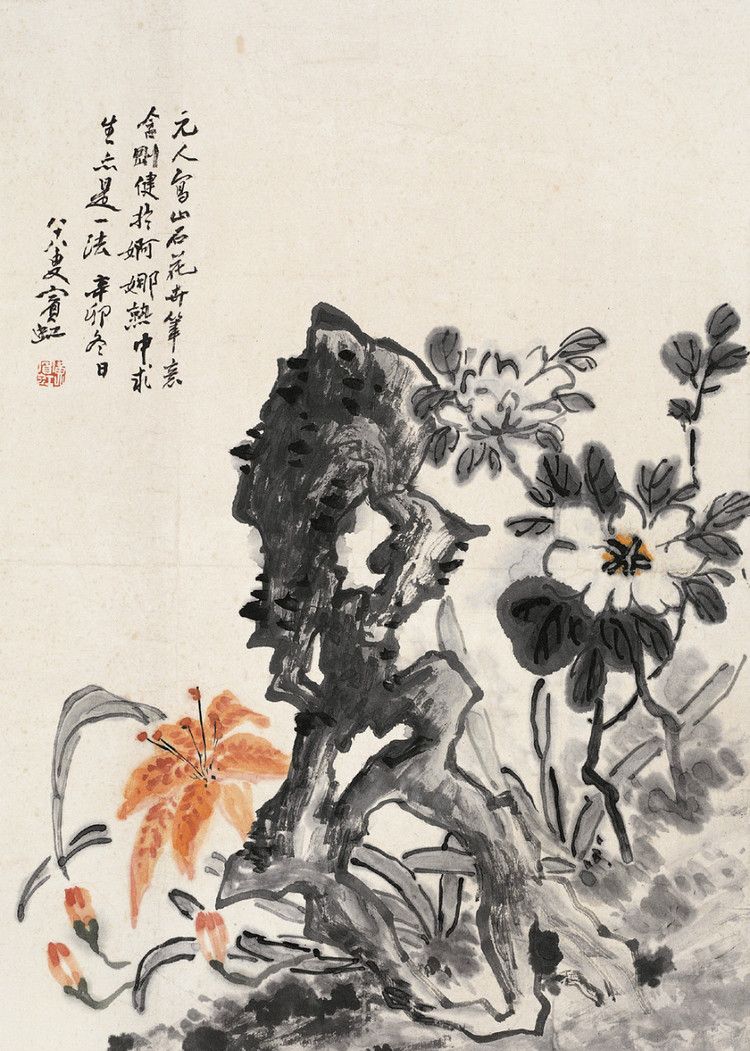 元人寫山石花卉筆意
含剛健於婀娜熟中求
生亦是一法 辛卯冬日
八十八叟賓虹